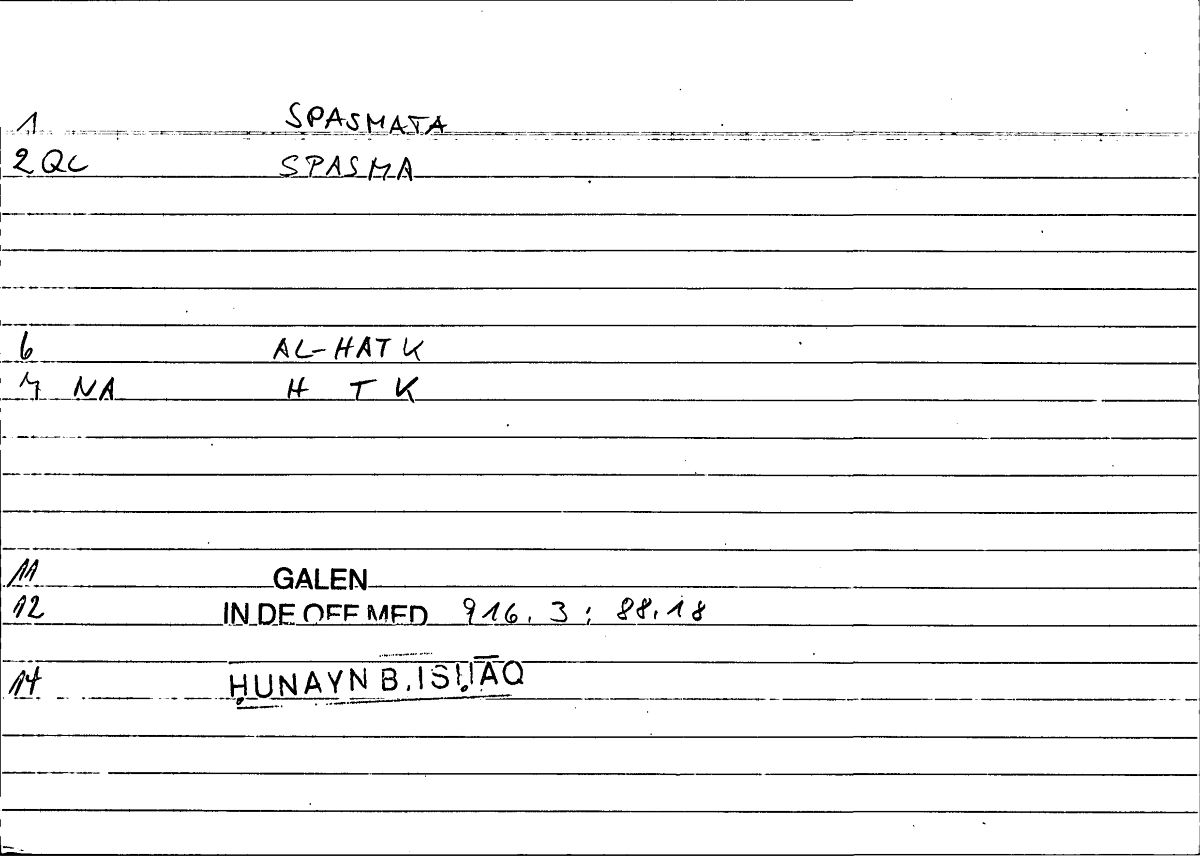 1 SPASMATA
2 QC SPASMA
6 AL-HATK
7 NA H T K
11 GALEN
12 IN DE OFF MED 916. 3 : 88.18
14 ḤUNAYN B. ISḤĀQ